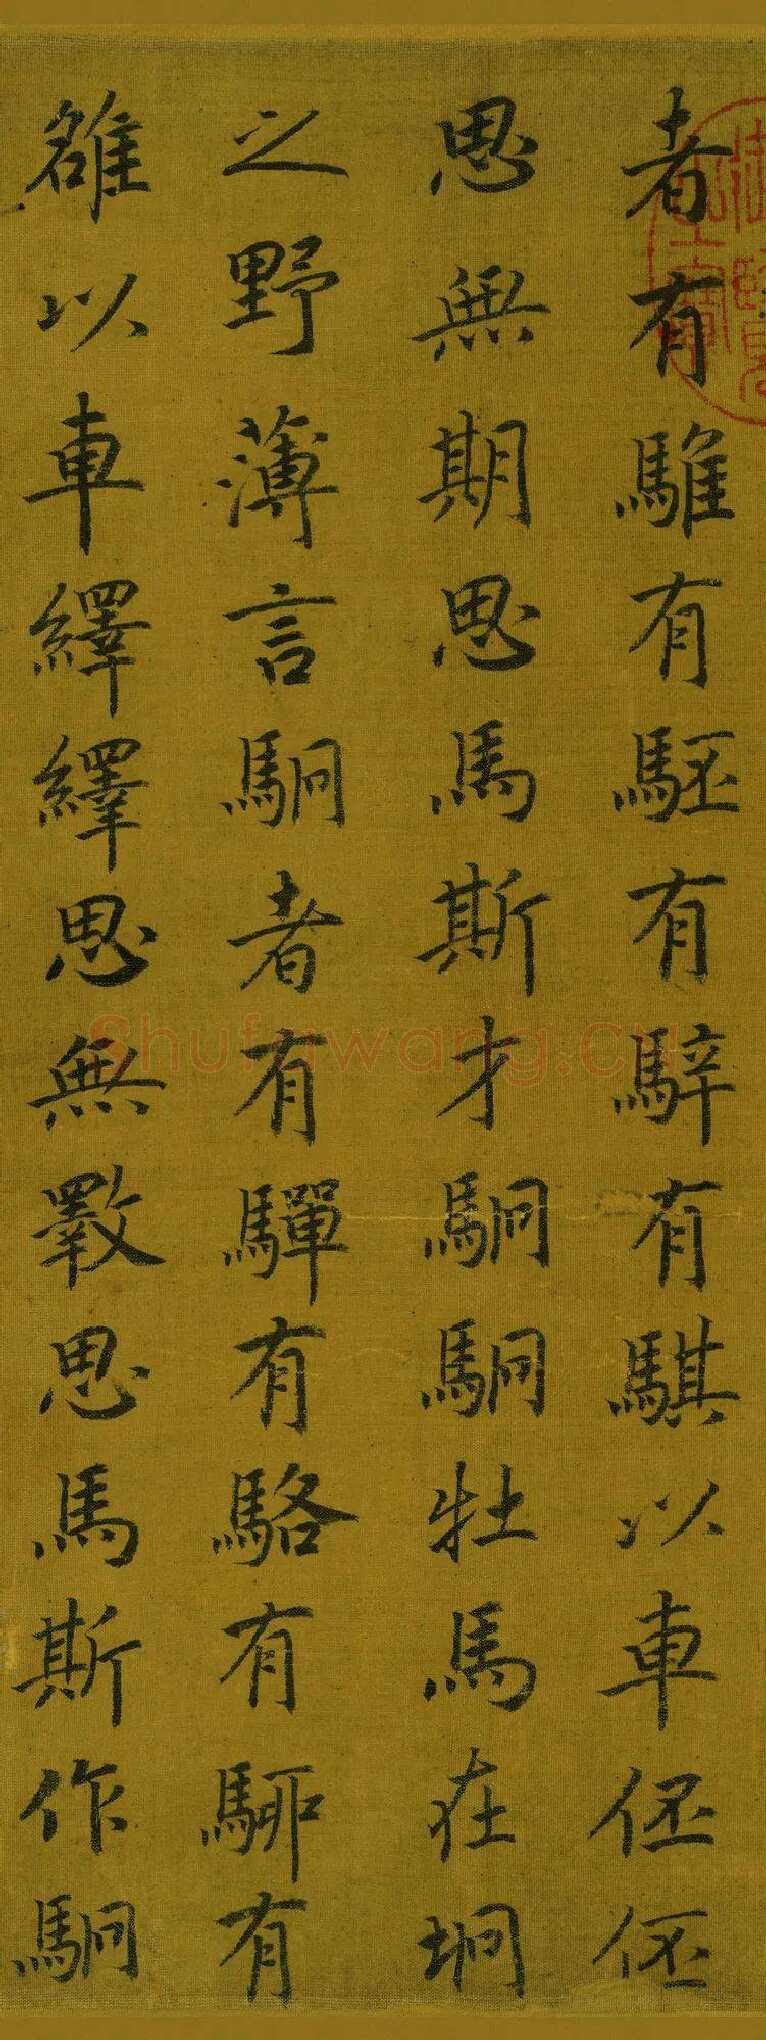 者有騅有駓有騂有騏以車伾伾
思無期思馬斯才駉駉牡馬在坰
之野薄言駉者有驒有駱有駵有
雒以車繹繹思無斁思馬斯作駉
Shufawang.cn